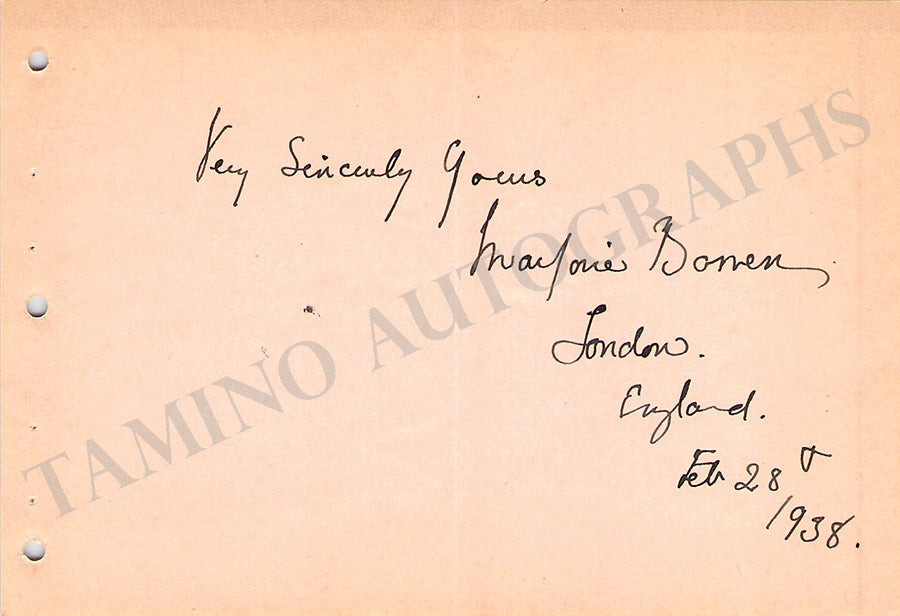 Very Sincerely Yours
Marjorie Bowen
London.
England.
Feb 28
1938.
TAMINO AUTOGRAPHS